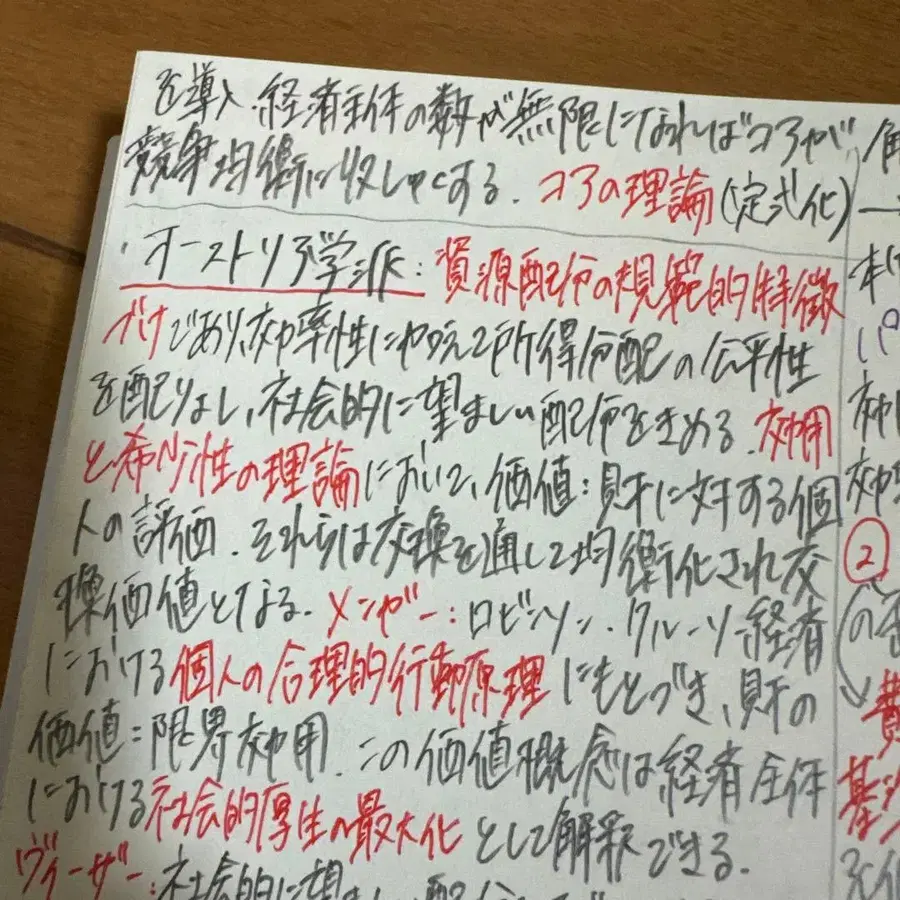 を導入.経済主体の数が無限になればコアが
競争均衡に収しゅくする.コアの理論(定式化)
・オーストリア学派:資源配分の規範的特徴
づけであり、効率性にかえて所得分配の公平性
を配りょし、社会的に望ましい配分をきめる.効用
と希少性の理論において、価値:財に対する個
人の評価.それらは交換を通して均衡化され交
換価値となる.メンガー:ロビンソン・クルーソー経済
における個人の合理的行動原理にもとづき、財の
価値=限界効用.この価値概念は経済全体
における社会的厚生の最大化として解釈できる.
ヴィーザー:社会的に望ましい配分
角
一
本
パ
効
効
②
の
費
基